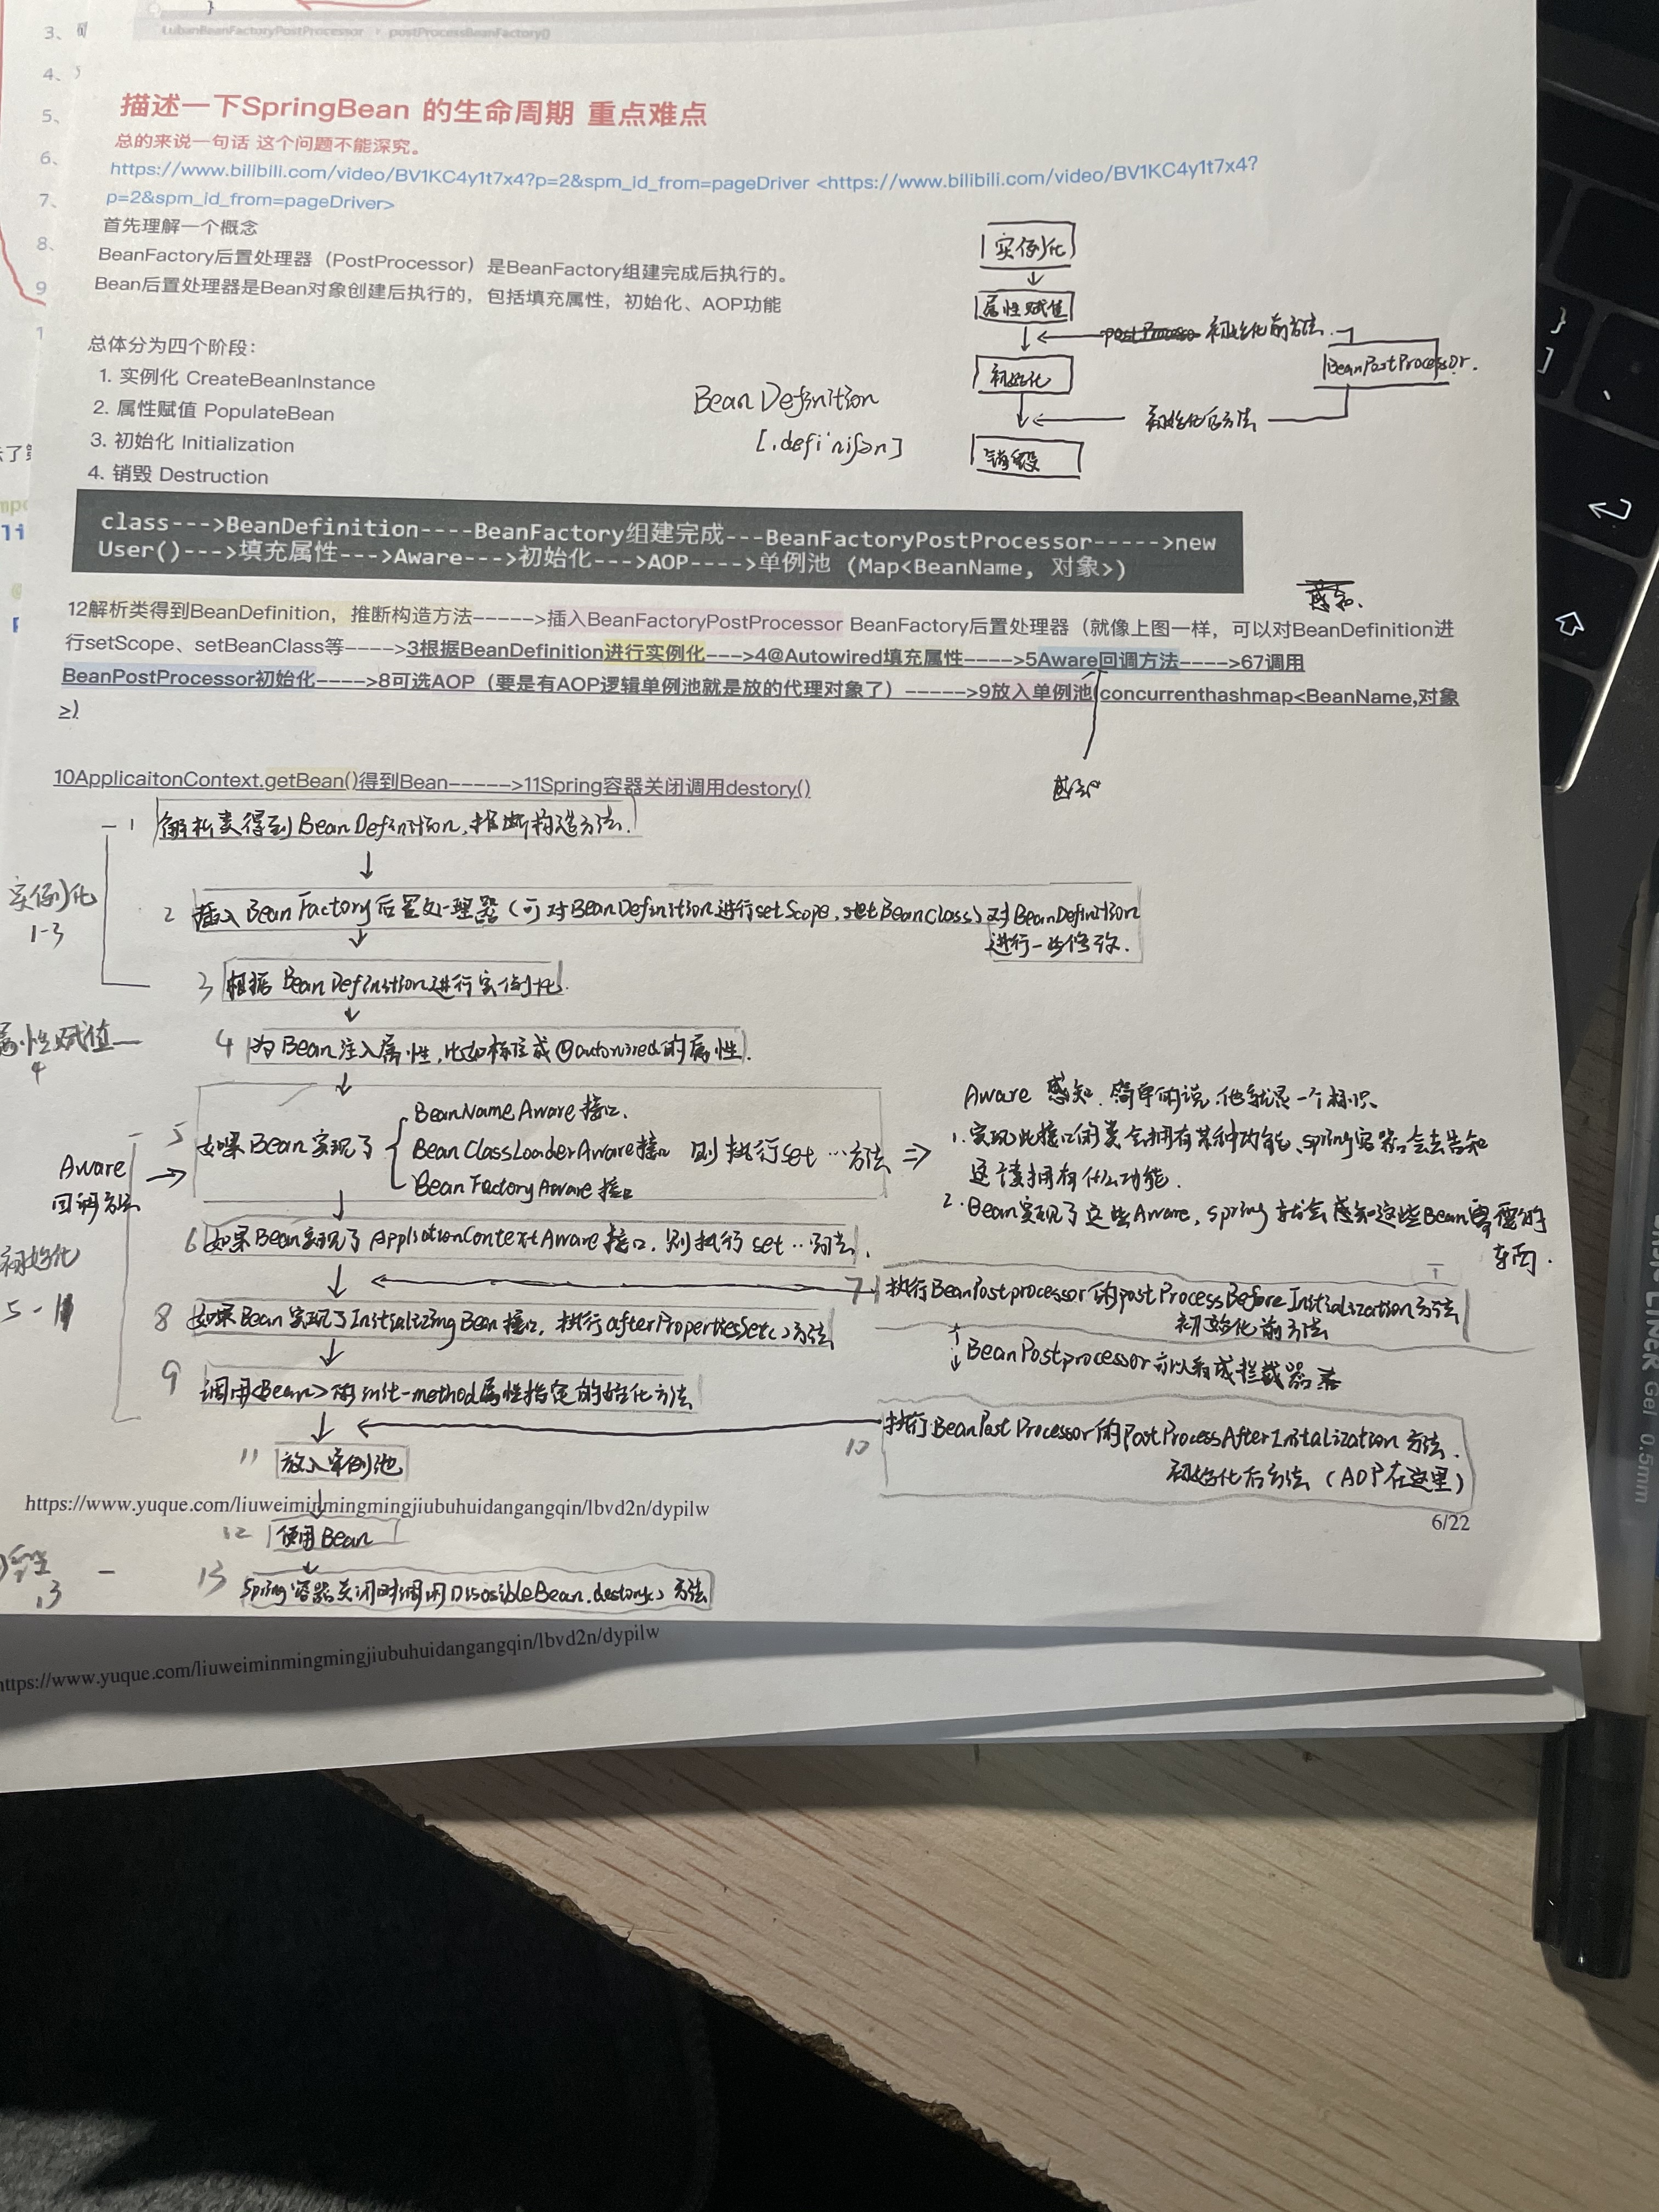 }
LubanBeanFactoryPostProcessor › postProcessBeanFactory()
3、
4、
5、
6、
7、
8、
9
1
描述一下SpringBean 的生命周期 重点难点
总的来说一句话 这个问题不能深究。
https://www.bilibili.com/video/BV1KC4y1t7x4?p=2&spm_id_from=pageDriver <https://www.bilibili.com/video/BV1KC4y1t7x4?
p=2&spm_id_from=pageDriver>
首先理解一个概念
BeanFactory后置处理器（PostProcessor）是BeanFactory组建完成后执行的。
Bean后置处理器是Bean对象创建后执行的，包括填充属性，初始化、AOP功能
总体分为四个阶段：
1. 实例化 CreateBeanInstance
2. 属性赋值 PopulateBean
3. 初始化 Initialization
4. 销毁 Destruction
实例化
属性赋值
初始化前方法
BeanPostProcessor.
初始化
初始化后方法
销毁
BeanDefinition
class--->BeanDefinition----BeanFactory组建完成---BeanFactoryPostProcessor----->new
User()--->填充属性--->Aware--->初始化--->AOP---->单例池 (Map<BeanName, 对象>)
感知.
12解析类得到BeanDefinition，推断构造方法----->插入BeanFactoryPostProcessor BeanFactory后置处理器（就像上图一样，可以对BeanDefinition进
行setScope、setBeanClass等---->3根据BeanDefinition进行实例化--->4@Autowired填充属性---->5Aware回调方法---->67调用
BeanPostProcessor初始化---->8可选AOP（要是有AOP逻辑单例池就是放的代理对象了）----->9放入单例池(concurrenthashmap<BeanName,对象
>)
感知
10ApplicaitonContext.getBean()得到Bean----->11Spring容器关闭调用destory()
1 解析类得到BeanDefinition,推断构造方法.
实例化
1-3
2 插入BeanFactory后置处理器(可对BeanDefinition进行setScope,setBeanClass)对BeanDefinition
进行一些修改.
3 根据BeanDefinition进行实例化.
属性赋值
4
4 为Bean注入属性,比如标注成@autowired的属性.
5 如果Bean实现了
BeanNameAware接口、
BeanClassLoaderAware接口
BeanFactoryAware接口
则执行set…方法 ⇒
Aware
回调方法
Aware 感知.简单的说.他就是一个标识、
1.实现此接口的类会拥有某种功能、spring容器会去告知
这个类拥有什么功能.
2.Bean实现了这些Aware,spring就会感知这些Bean要的
东西.
6 如果Bean实现了ApplicationContextAware接口,则执行set…方法.
初始化
5-11
7 执行BeanPostprocessor的postProcessBeforeInitialization方法
初始化前方法
8 如果Bean实现了InitializingBean接口,执行afterPropertiesSet()方法
BeanPostprocessor可以看成拦截器
9 调用<Bean>的init-method属性指定的始化方法
10 执行BeanPostProcessor的PostProcessAfterInitialization方法.
初始化后方法 (AOP在这里)
11 放入单例池
https://www.yuque.com/liuweiminmingmingjiubuhuidangangqin/lbvd2n/dypilw
6/22
12 使用Bean
13 Spring容器关闭时调用DisosibleBean.destory()方法
13
https://www.yuque.com/liuweiminmingmingjiubuhuidangangqin/lbvd2n/dypilw
LINER Gel 0.5mm